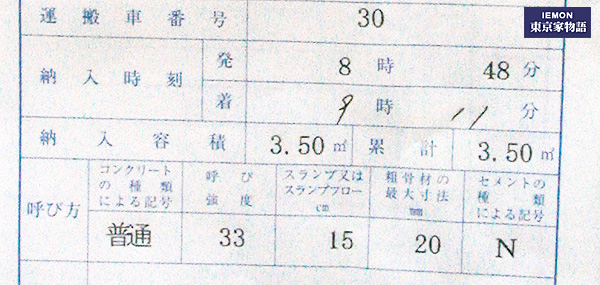 IEMON
東京家物語
運搬車番号 30
納入時刻 発 8時 48分
着 9時 11分
納入容積 3.50㎥ 累計 3.50㎥
呼び方
コンクリートの種類による記号
呼び強度
スランプ又はスランプフロー cm
粗骨材の最大寸法 mm
セメントの種類による記号
普通 33 15 20 N